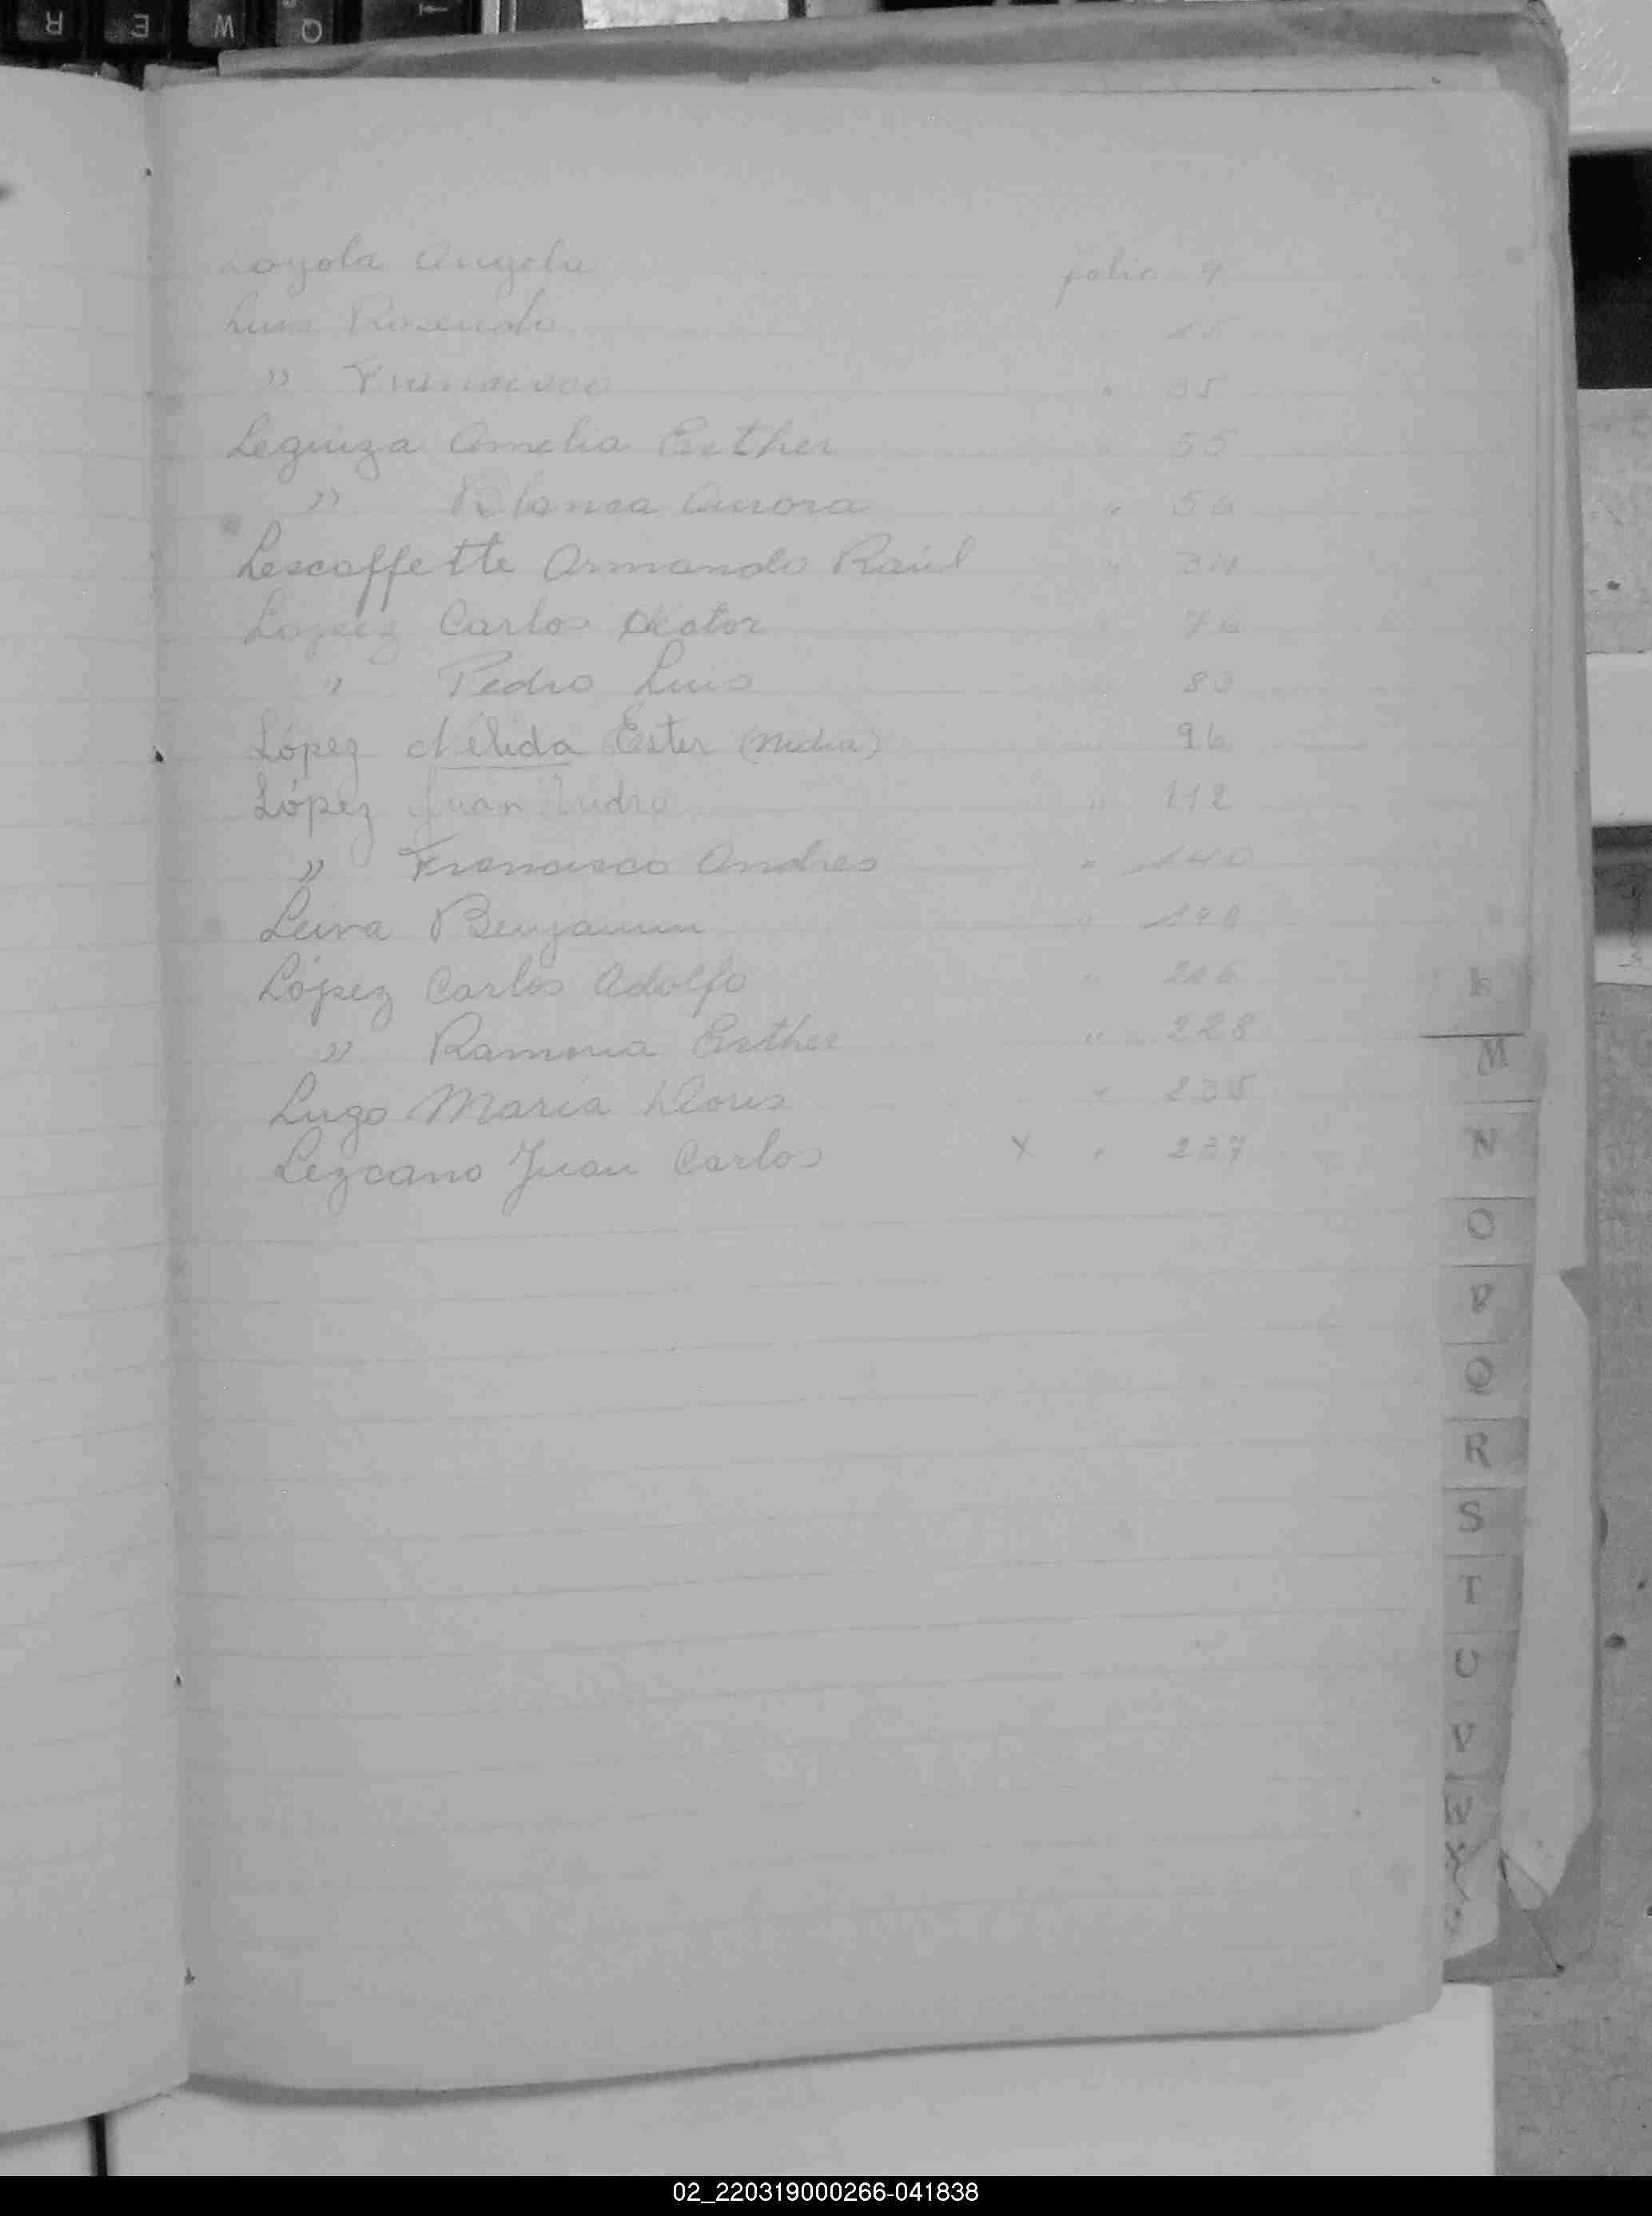 Loyola Angela folio 9
Luis Rosendo 15
" Francisco " 35
Leguiza Amelia Esther 55
" Blanca Aurora " 56
Lescaffette Armando Raúl "
Lopez Carlos Hector 76
" Pedro Luis 83
López Nélida Ester (Nidia) " 96
López Juan " 112
" Francisco Andres " 140
Leiva Benjamin " 198
López Carlos Adolfo " 206
" Ramona Esther " 228
Lugo María Doris " 235
Lezcano Juan Carlos X " 237
L
M
N
O
P
Q
R
S
T
U
V
W
X
R E W Q
02_220319000266-041838